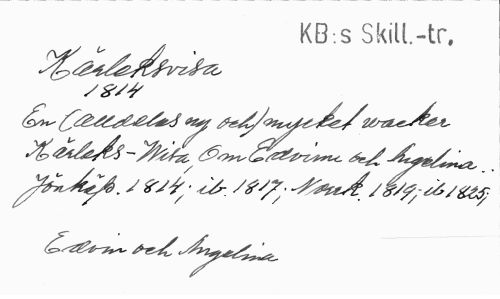 KB:s Skill.-tr.
Kärleksvisa
1814
En (alldeles ny och) mycket wacker
Kärleks-Wisa, Om Edvine och Angelina..
Jönköp. 1814; ib. 1817; Norrk. 1819; ib 1825;
Edvin och Angelina